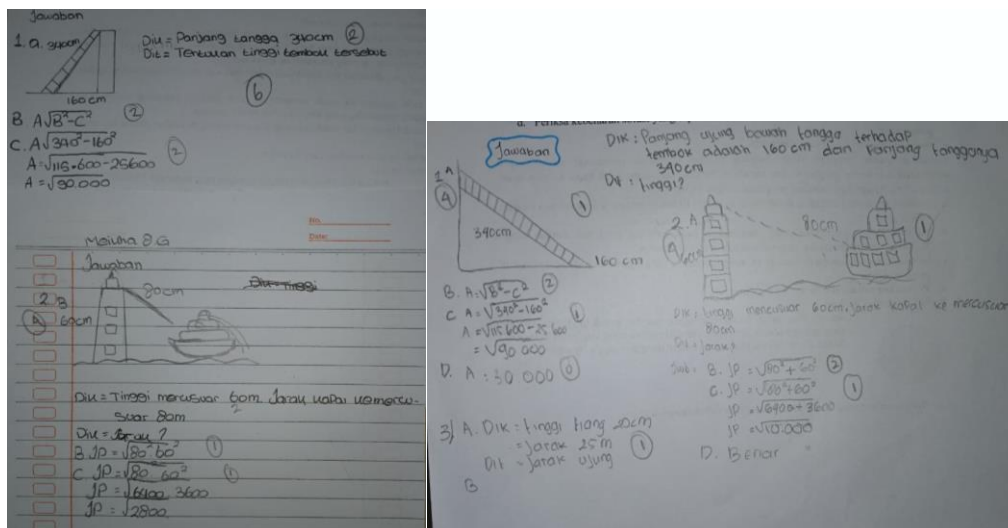 Jawaban
1. a. 340cm
Dik = Panjang tangga 340cm ②
Dit = Tentukan tinggi tembok tersebut
160 cm
⑥
B A√B²-C² ②
C. A√340²-160²
A = √115.600 - 25600 ②
A = √90.000
No.
Date:
Meisha 8G
Jawaban
80cm
2. B
④ 60cm
Dik = Tinggi mercusuar 60m. Jarak kapal ke mercu-
suar 80m
②
Dik = Jarak?
B JP = √80² 60² ①
C JP = √80 60² ①
JP = √6400 3600
JP = √2800
Jawaban
Dik : Panjang ujung bawah tangga terhadap
tembok adalah 160 cm dan Panjang tangganya
340cm
Dit : tinggi?
A
④
①
340cm
160 cm
B. A = √B² - C² ②
C A = √340² - 160² ①
A = √115 600 - 25 600
= √90 000
D. A = 30 000 ⓪
2. A
60cm
80cm
①
Dik : tinggi mercusuar 60cm, jarak kapal ke mercusuar
80cm
Dit : Jarak?
Jwb : B. JP = √80² + 60² ②
C. JP = √80² + 60² ①
JP = √6400 + 3600
JP = √10.000
D. Benar
3) A. Dik = tinggi tiang 20cm
= Jarak 25m ①
Dit = Jarak ujung
B